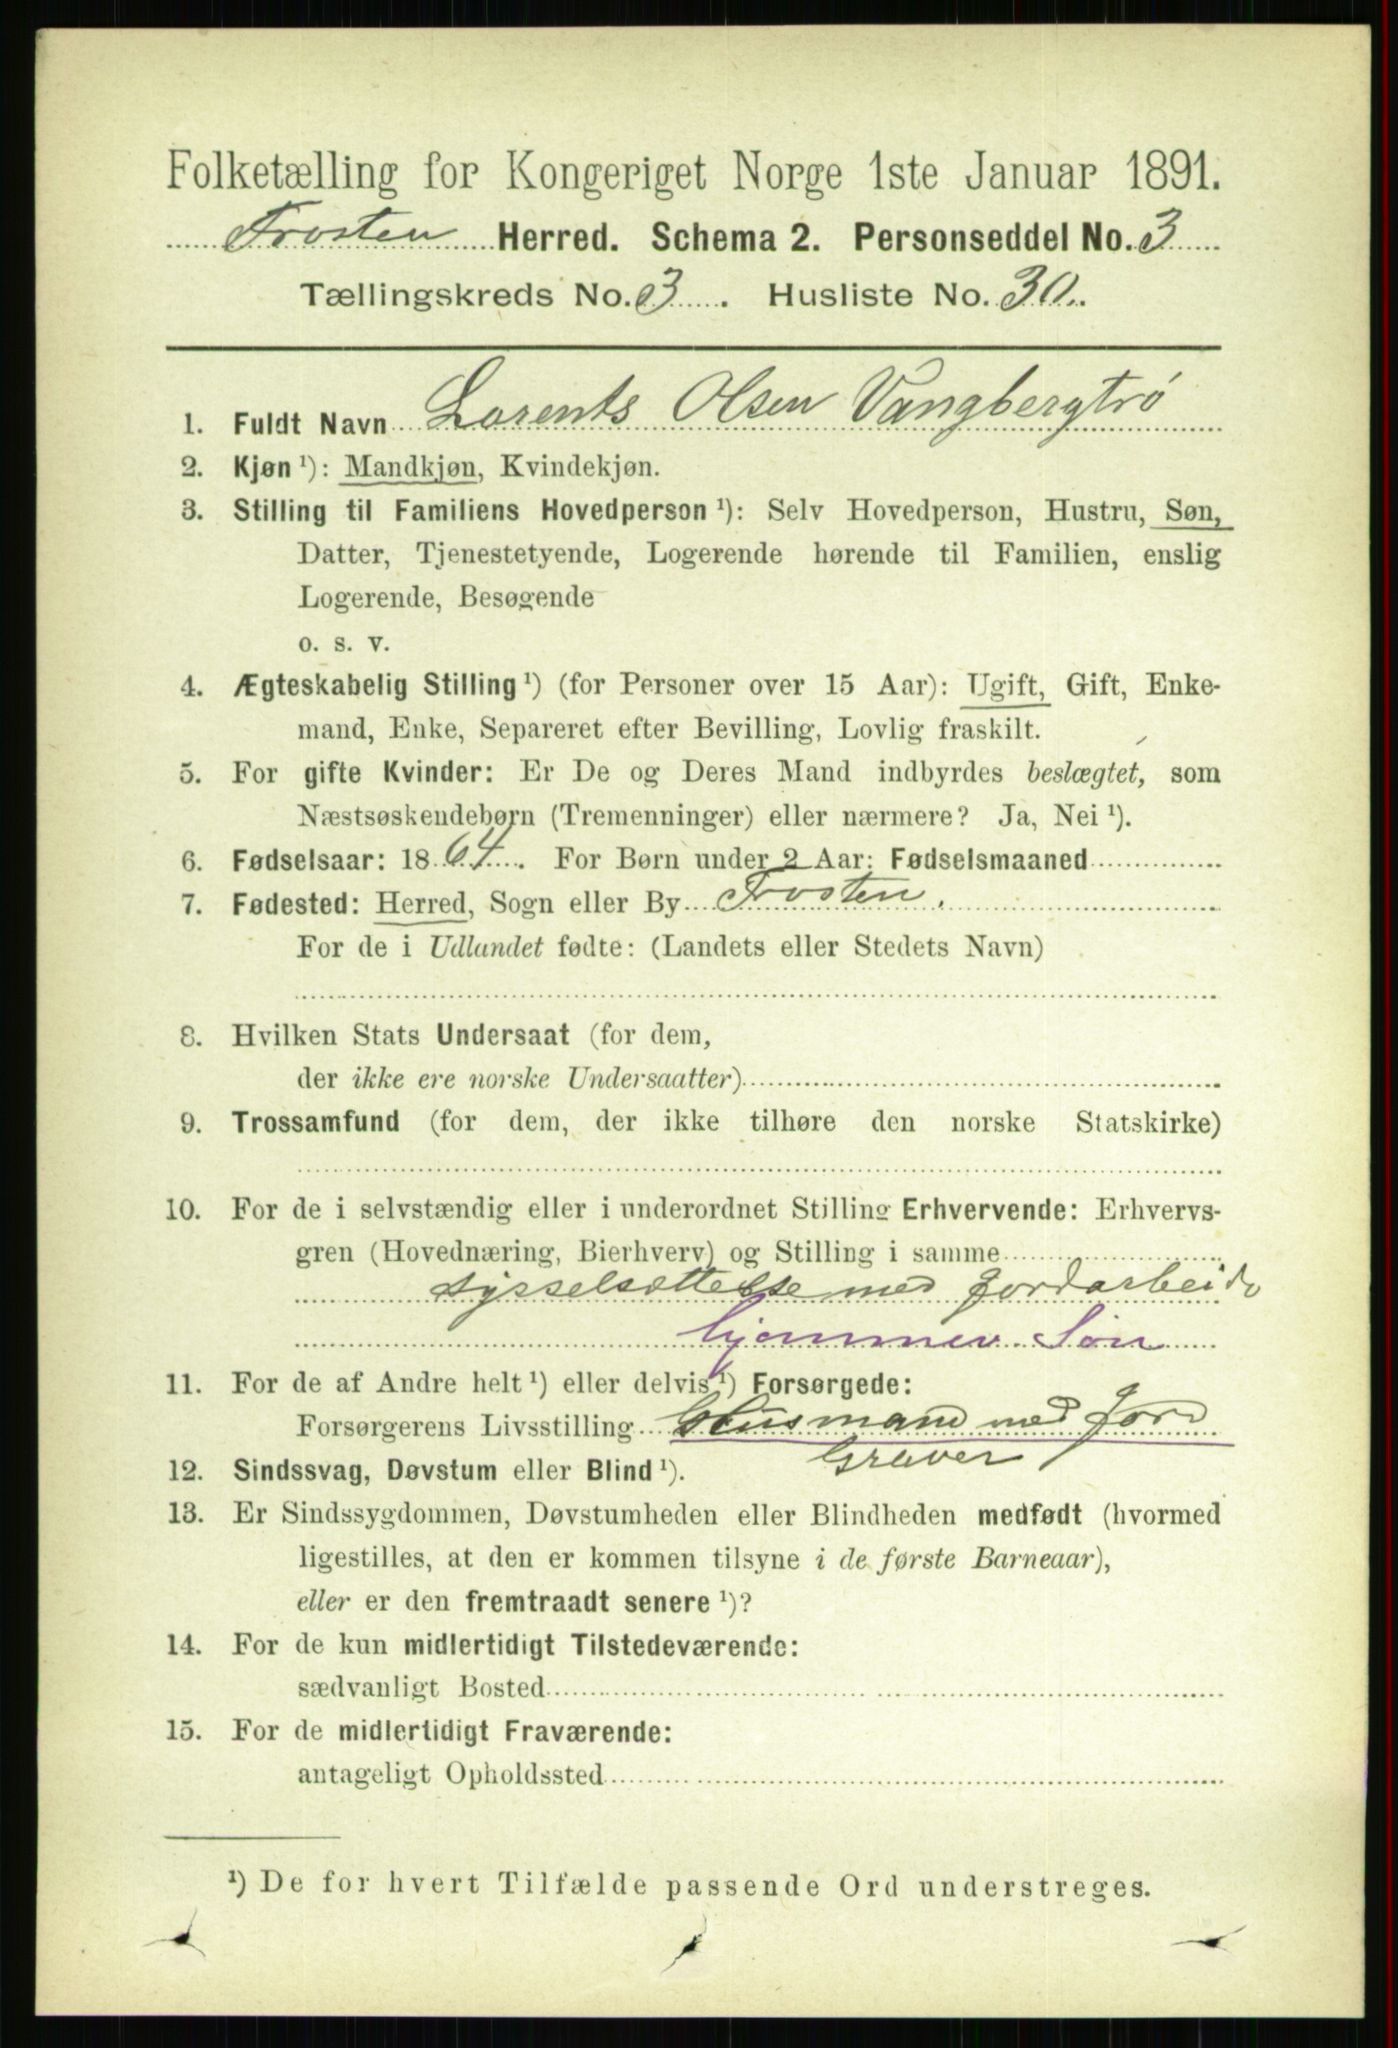 Folketælling for Kongeriget Norge 1ste Januar 1891.
Frosten Herred. Schema 2. Personseddel No. 3
Tællingskreds No. 3. Husliste No. 30.
1. Fuldt Navn Lorents Olsen Vangbergtrø
2. Kjøn ¹): Mandkjøn, Kvindekjøn.
3. Stilling til Familiens Hovedperson ¹): Selv Hovedperson, Hustru, Søn,
Datter, Tjenestetyende, Logerende hørende til Familien, enslig
Logerende, Besøgende
o. s. v.
4. Ægteskabelig Stilling ¹) (for Personer over 15 Aar): Ugift, Gift, Enke-
mand, Enke, Separeret efter Bevilling, Lovlig fraskilt.
5. For gifte Kvinder: Er De og Deres Mand indbyrdes beslægtet, som
Næstsøskendebørn (Tremenninger) eller nærmere? Ja, Nei ¹).
6. Fødselsaar: 1864. For Børn under 2 Aar: Fødselsmaaned
7. Fødested: Herred, Sogn eller By Frosten.
For de i Udlandet fødte: (Landets eller Stedets Navn)
8. Hvilken Stats Undersaat (for dem,
der ikke ere norske Undersaatter)
9. Trossamfund (for dem, der ikke tilhøre den norske Statskirke)
10. For de i selvstændig eller i underordnet Stilling Erhvervende: Erhvervs-
gren (Hovednæring, Bierhverv) og Stilling i samme
sysselsættelse med Jordarbeide
hjemmev. Søn
11. For de af Andre helt ¹) eller delvis ¹) Forsørgede:
Forsørgerens Livsstilling Husmand med Jord
Graver
12. Sindssvag, Døvstum eller Blind ¹).
13. Er Sindssygdommen, Døvstumheden eller Blindheden medfødt (hvormed
ligestilles, at den er kommen tilsyne i de første Barneaar),
eller er den fremtraadt senere ¹)?
14. For de kun midlertidigt Tilstedeværende:
sædvanligt Bosted
15. For de midlertidigt Fraværende:
antageligt Opholdssted
¹) De for hvert Tilfælde passende Ord understreges.